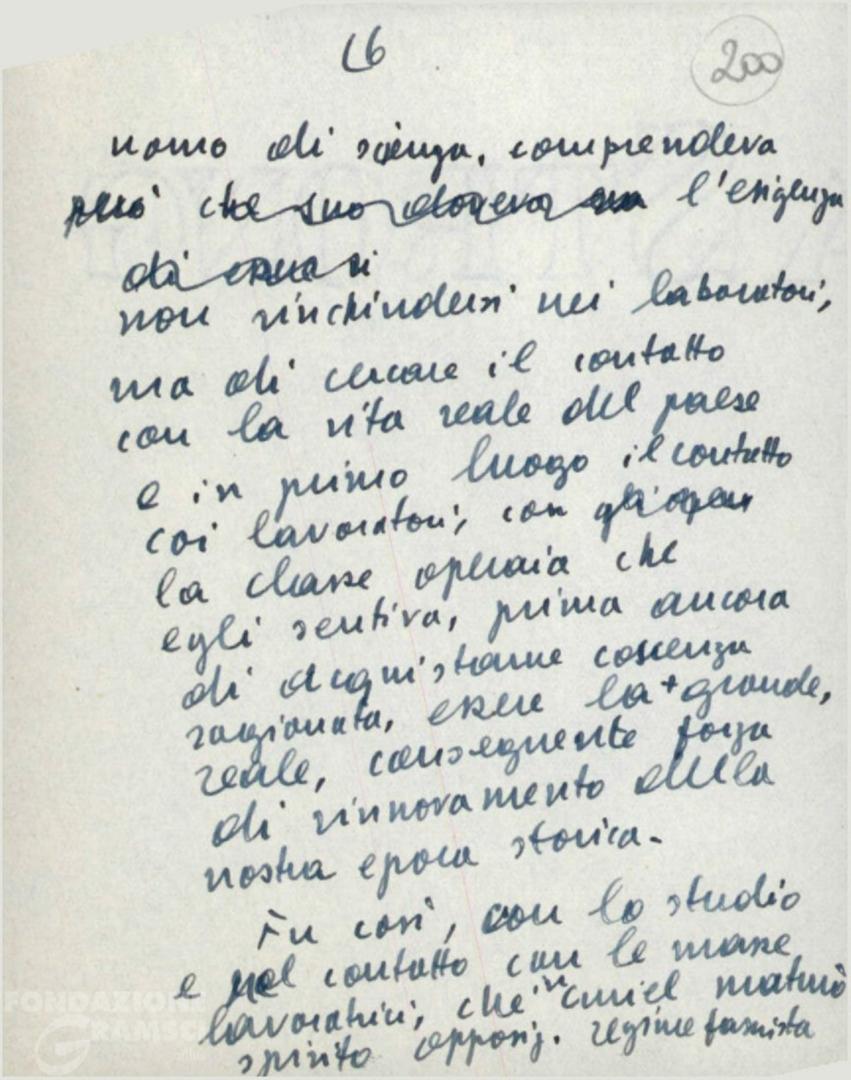 16
200
uomo di scienza, comprendeva
però che suo doveva l'esigenza
di
non rinchiudersi nei laboratori,
ma di cercare il contatto
con la vita reale del paese
e in primo luogo il contatto
coi lavoratori, con gli oper
la classe operaia che
egli sentiva, prima ancora
di acquistarne coscienza
ragionata, essere la + grande,
reale, conseguente forza
di rinnovamento della
nostra epoca storica.
Fu così, con lo studio
e nel contatto con le masse
lavoratrici, che Curiel maturò
spirito opposiz. regime fascista
FONDAZIONE
GRAMSCI